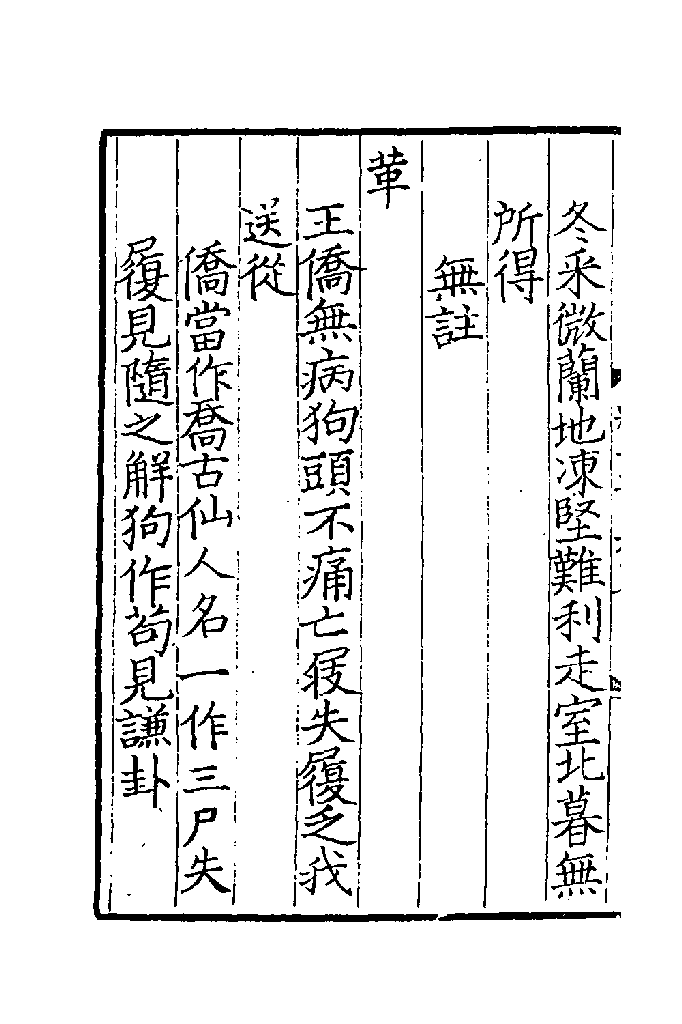 冬釆微蘭地凍堅難利走室北暮無
所得
無註
革
王僑無病狗頭不痛亡屐失履乏我
送從
僑當作喬古仙人名一作三尸失
履見隨之解狗作苟見謙卦